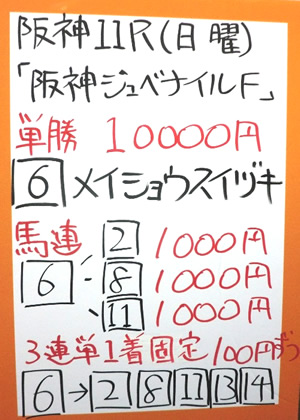 阪神11R(日曜)
「阪神ジュベナイルF」
単勝 10000円
6 メイショウスイヅキ
馬連 2 1000円
6 8 1000円
11 1000円
3連単1着固定100円ずつ
6→2 8 11 13 14